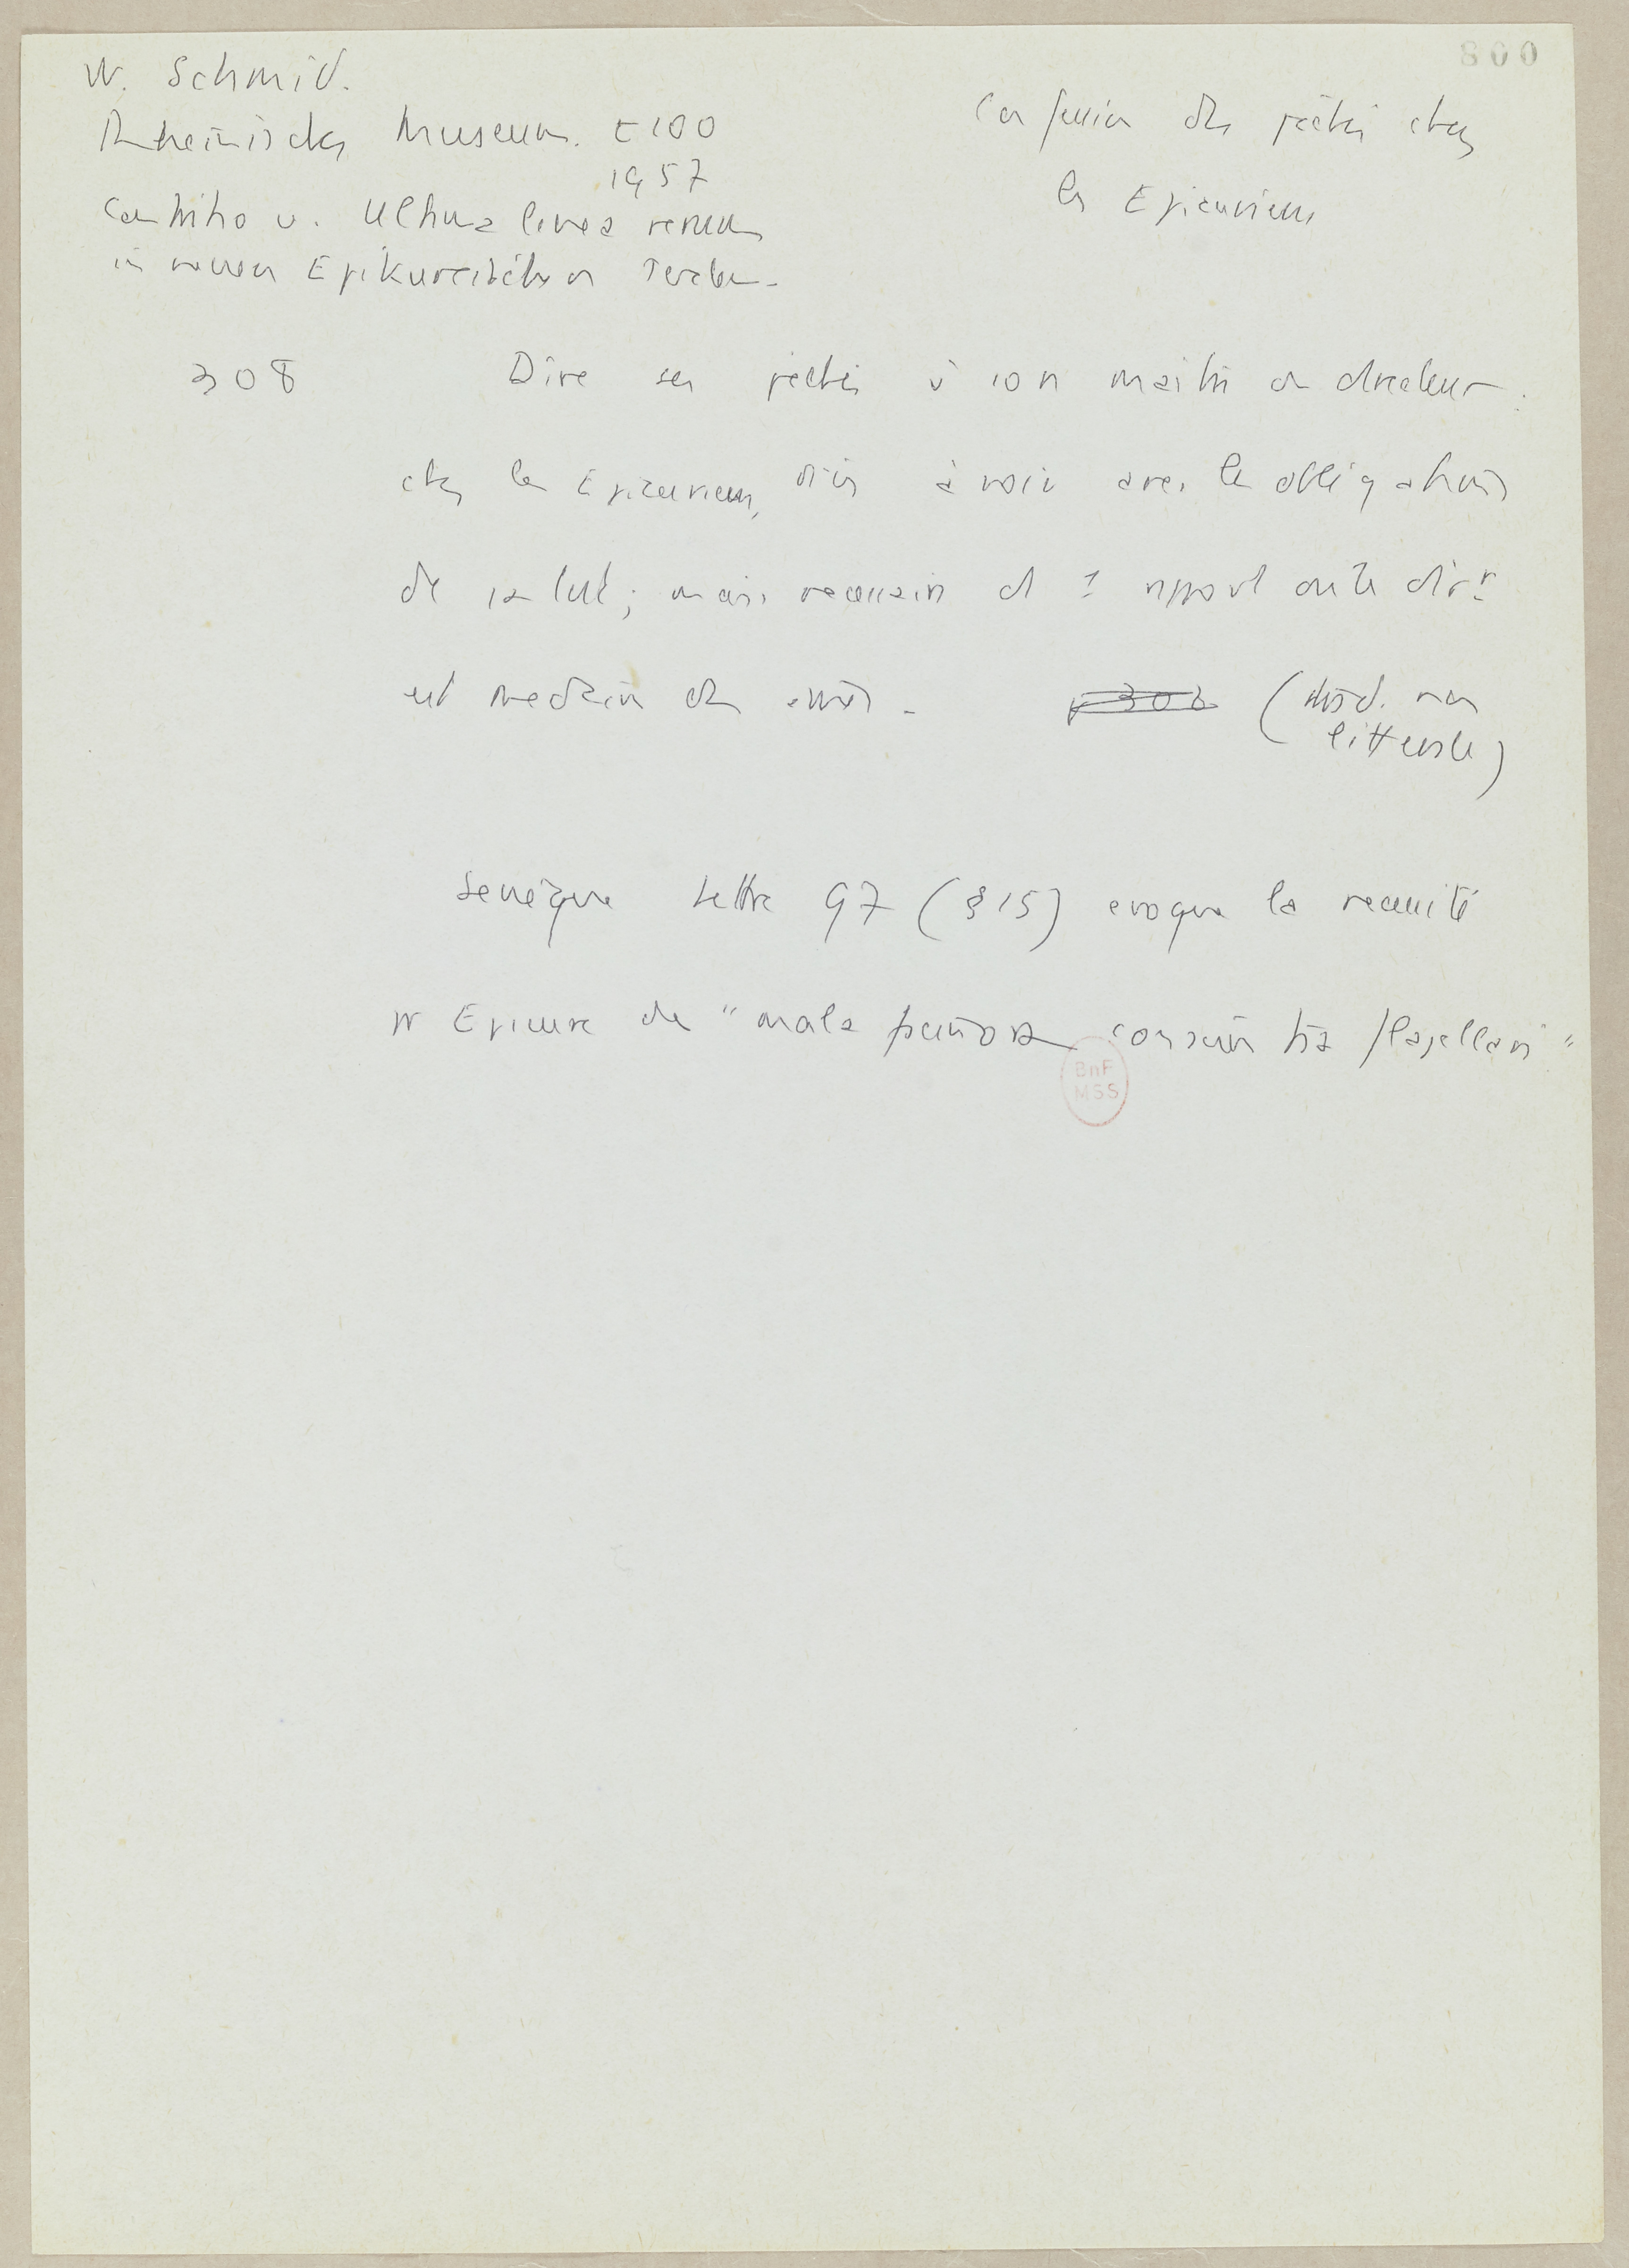 800
W. Schmid.
Rheinisches Museum. t 100
1957
Contritio u. Ultima linea rerum
in neuen Epikureischen Texten.
Confession des péchés chez
les Epicuriens
308 Dire ses péchés à son maître ou directeur.
chez les Epicuriens, rien à voir avec les obligations
de salut; mais nécessaire ds 1 rapport où le dirr
est médecin des âmes.
p 302 (trad. non
littérale)
Senèque Lettre 97 (§ 15) evoque la nécessité
pr Epicure de "mala facinora conscientia flagellari"
BnF
MSS